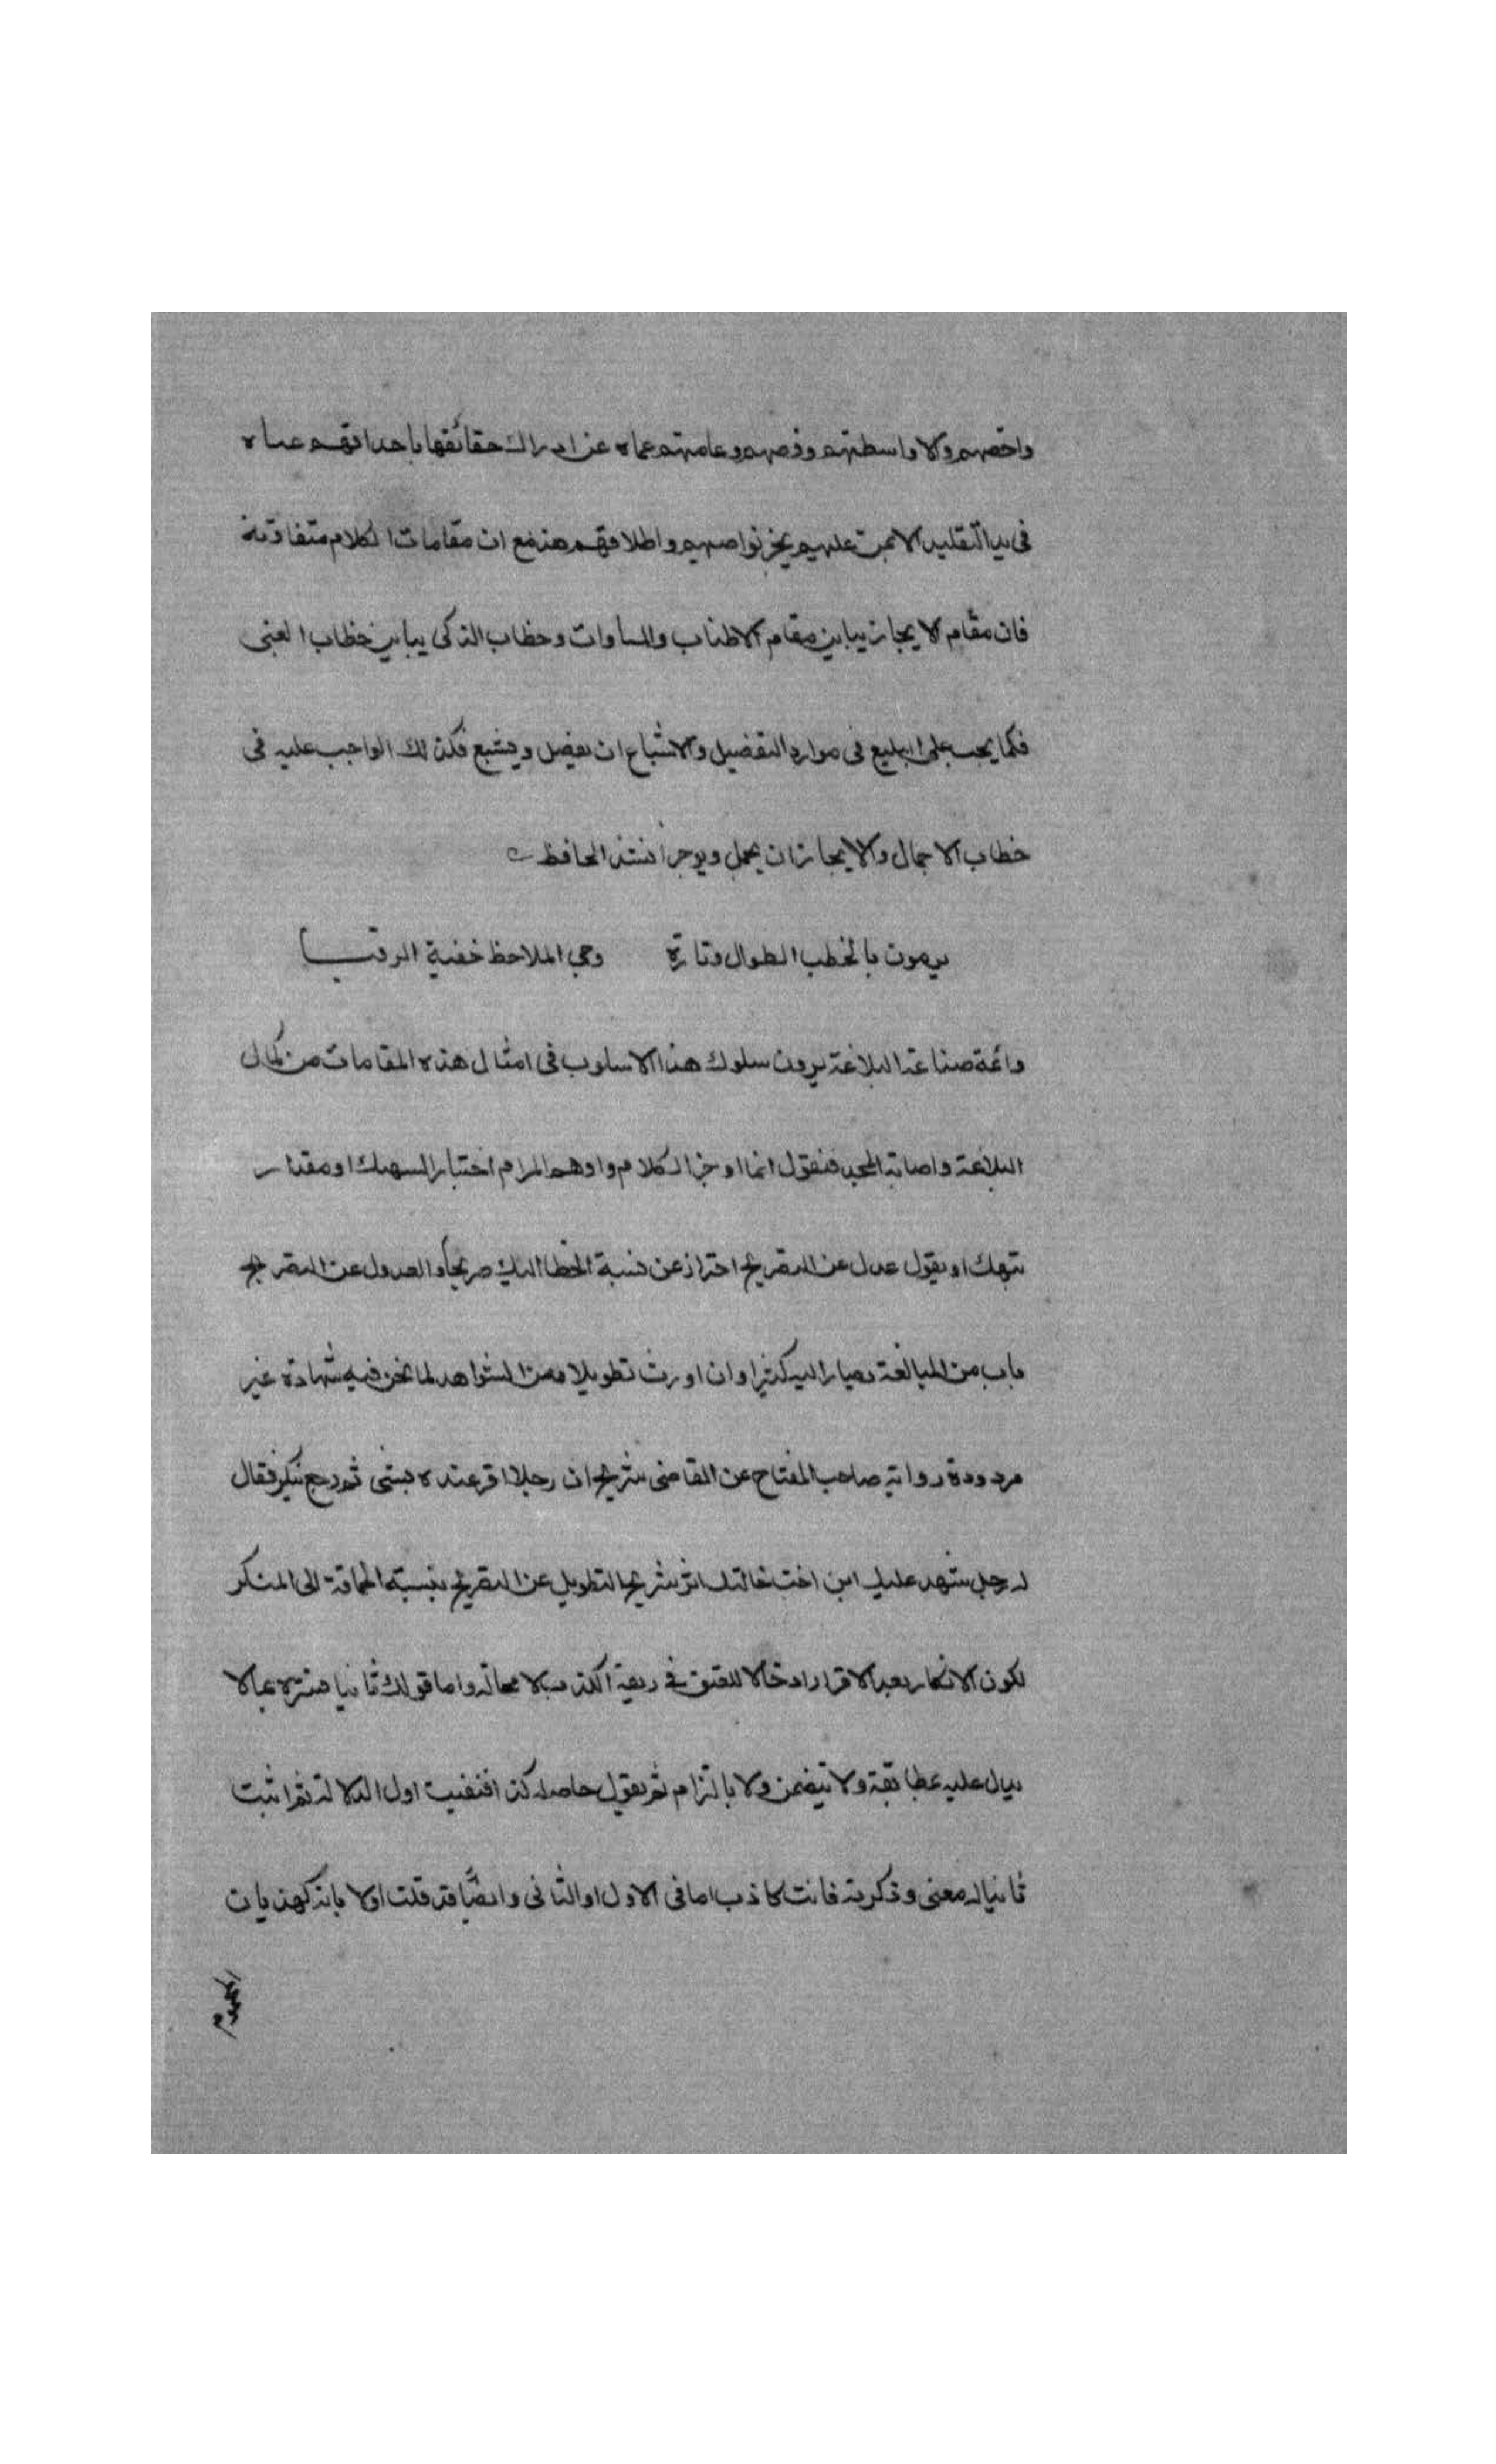 واخصهم ولا واسطتهم وفصهم وعامتهم عماه عن ادراك حقائقها باحداقهم عماه
في بيد التقليد الاعمى عليهم بحز نواصيهم واطلاقهم هذ مع ان مقامات الكلام متفاوتة
فان مقام الايجاز يباين مقام الاطناب والمساوات وخطاب الذكى يباين خطاب الغبى
فكما يجب على البليغ في موارد التفصيل والاشباع ان يفصل ويشبع فكذلك الواجب عليه في
خطاب الاجمال والايجاز ان يجمل ويوجز انشد الجاحظ
يرمون بالخطب الطوال وتارة وحي الملاحظ خفية الرقبا
وائمة صناعة البلاغة يرون سلوك هذا الاسلوب في امثال هذه المقامات من كمال
البلاغة واصابة المحز فنقول انما اوجز الكلام واوهم المرام اختبارا لسهك او مقدار
تنبهك او نقول عدل عن التصريح احتراز عن نسبة الخطا اليك صريحا والعدول عن التصريح
باب من البلاغة يصار اليه كثيرا وان اورث تطويلا ومن الشواهد لما نحن فيه شهادة غير
مردودة رواية صاحب المفتاح عن القاضى شريح ان رجلا اقر عنده بشئ ثم رجع ينكر فقال
له رجل شهد عليك ابن اخت خالتك اثر شريح التطويل عن التصريح بنسبة الحماقة الى المنكر
لكون الانكار بعد الاقرار ادخالا للعنق في ربقة الكذب لا محالة واما قولك ثانيا فسره بما لا
يدل عليه بمطابقة ولا بتضمن ولا بالتزام ثم نقول حاصله كذا فنفيت اول الدلالة ثم اثبت
ثانيا له معنى وذكرته فانت كاذب اما في الاول او الثانى وايضا قد قلت اولا بانه كهذيات
المحموم